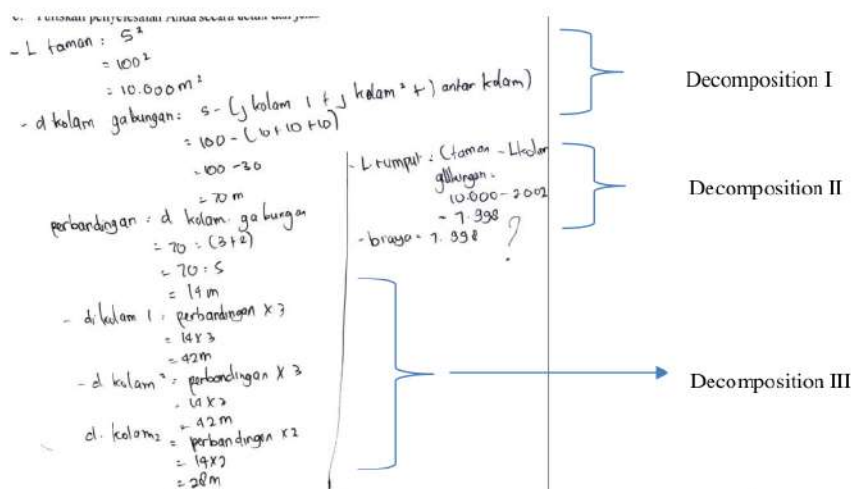 e. Tuliskan penyelesaian Anda secara detail dan jelas
- L taman : S²
= 100²
= 10.000 m²
- d kolam gabungan : s - (j kolam 1 + j kolam ² + j antar kolam)
= 100 - (10 + 10 + 10)
= 100 - 30
= 70 m
perbandingan : d kolam. gabungan
= 70 : (3+2)
= 70 : 5
= 14 m
- di kolam 1 : perbandingan x 3
= 14 x 3
= 42 m
- d kolam ² = perbandingan x 3
= 14 x 3
= 42 m
d. kolam2 = perbandingan x 2
= 14 x 2
= 28 m
- L. rumput : L taman - L kolam
gabungan.
10.000 - 2002
= 7.998
- biaya = 7.998 ?
Decomposition I
Decomposition II
Decomposition III